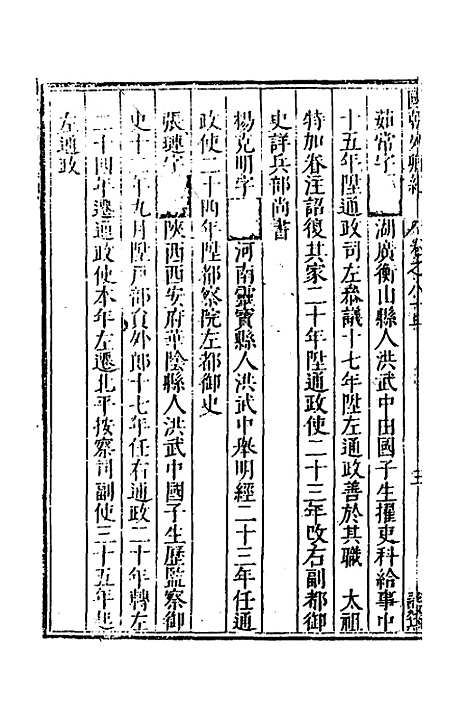 國朝列卿紀 卷之八十五 三
茹常字 湖廣衡山縣人洪武中由國子生擢吏科給事中
十五年陞通政司左叅議十七年陞左通政善於其職 太祖
特加眷注詔復其家二十年陞通政使二十三年改右副都御
史詳兵部尚書
楊克明字 河南靈寶縣人洪武中舉明經二十三年任通
政使二十四年陞都察院左都御史
張璉字 陝西西安府華陰縣人洪武中國子生歷監察御
史十二年九月陞戸部員外郎十七年任右通政二十年轉左
二十四年遷通政使本年左遷北平按察司副使三十五年
左通政